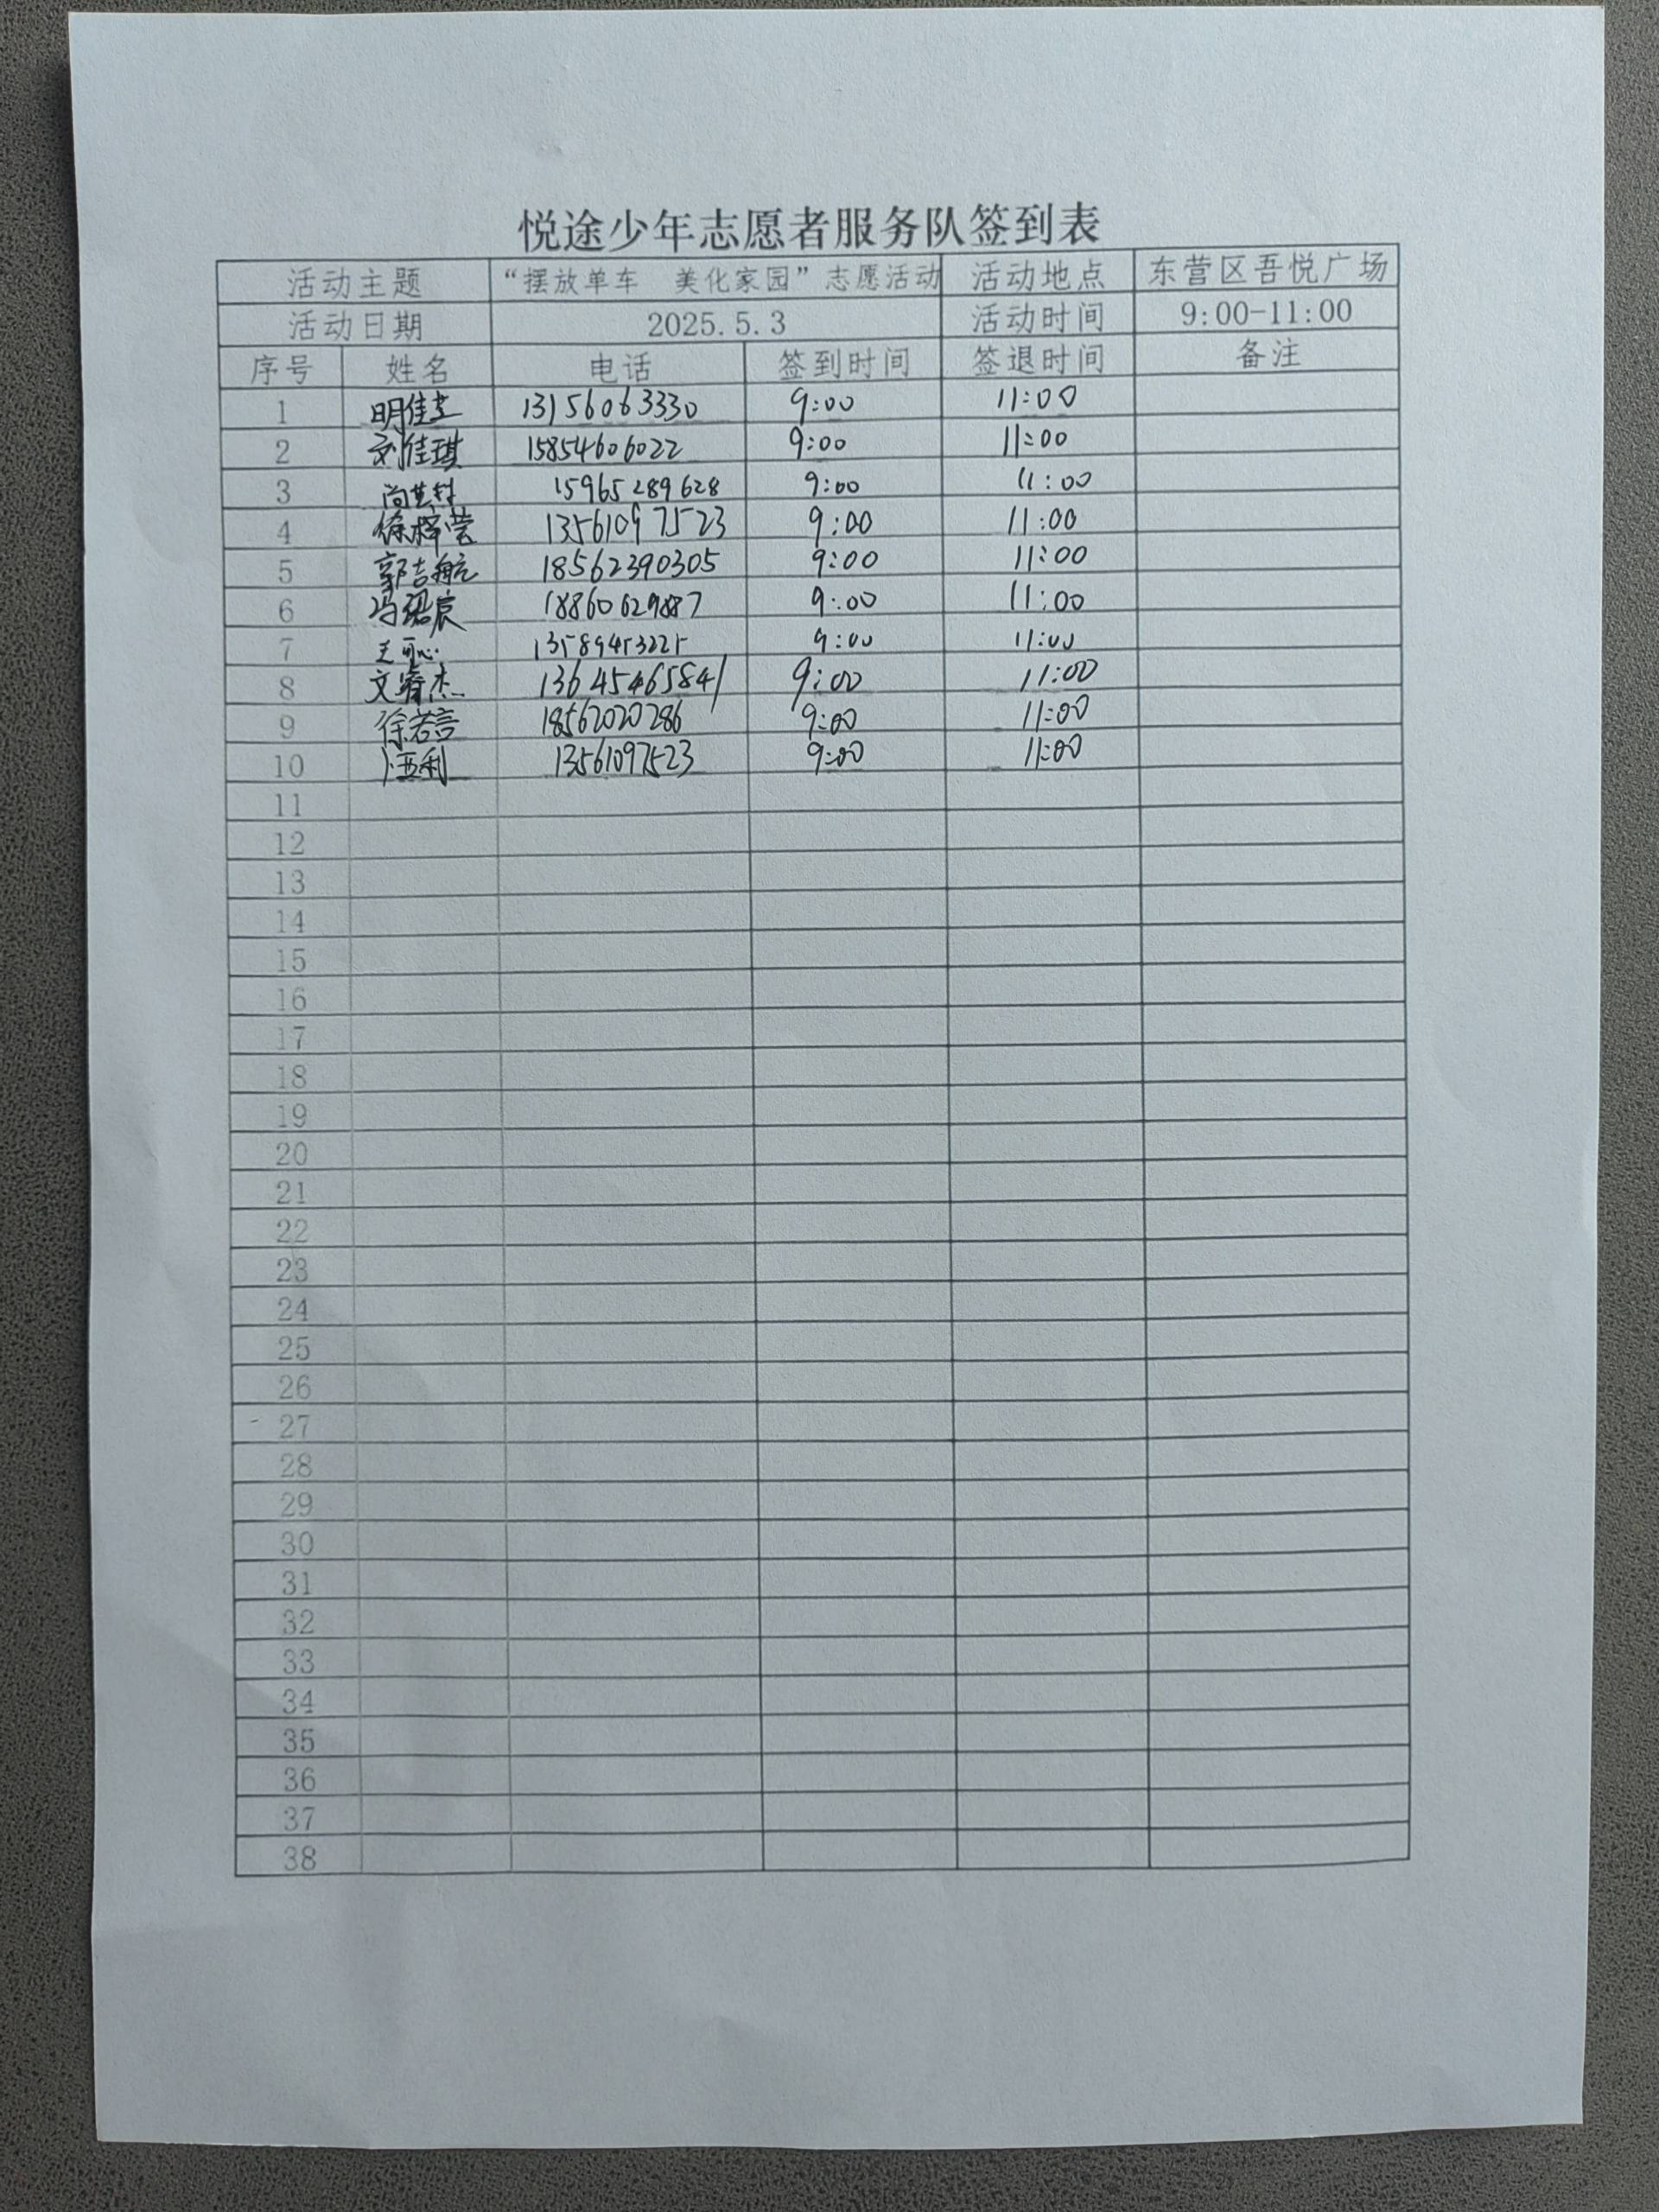 悦途少年志愿者服务队签到表
活动主题 “摆放单车 美化家园”志愿活动 活动地点 东营区吾悦广场
活动日期 2025.5.3 活动时间 9:00-11:00
序号 姓名 电话 签到时间 签退时间 备注
1 明佳 13156063330 9:00 11:00
2 刘佳琪 15854606022 9:00 11:00
3 15965289628 9:00 11:00
4 徐梓莹 13561097523 9:00 11:00
5 郭吉航 18562390305 9:00 11:00
6 冯绍宸 18860629887 9:00 11:00
7 王可心 13589453225 9:00 11:00
8 文睿杰 13645465841 9:00 11:00
9 徐若言 18562020286 9:00 11:00
10 13561097523 9:00 11:00
11
12
13
14
15
16
17
18
19
20
21
22
23
24
25
26
27
28
29
30
31
32
33
34
35
36
37
38